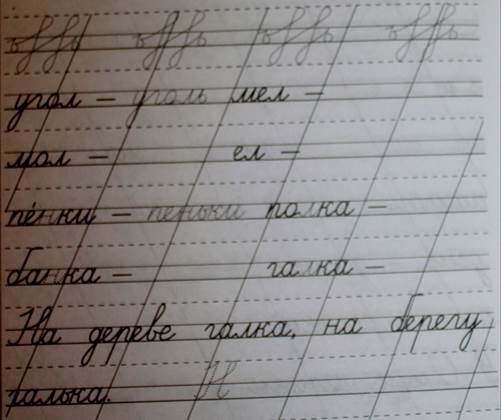 угол – уголь мел –
мол – ел –
пе́нки – пеньки полка –
банка – галка –
На дереве галка, на берегу
галька. Н